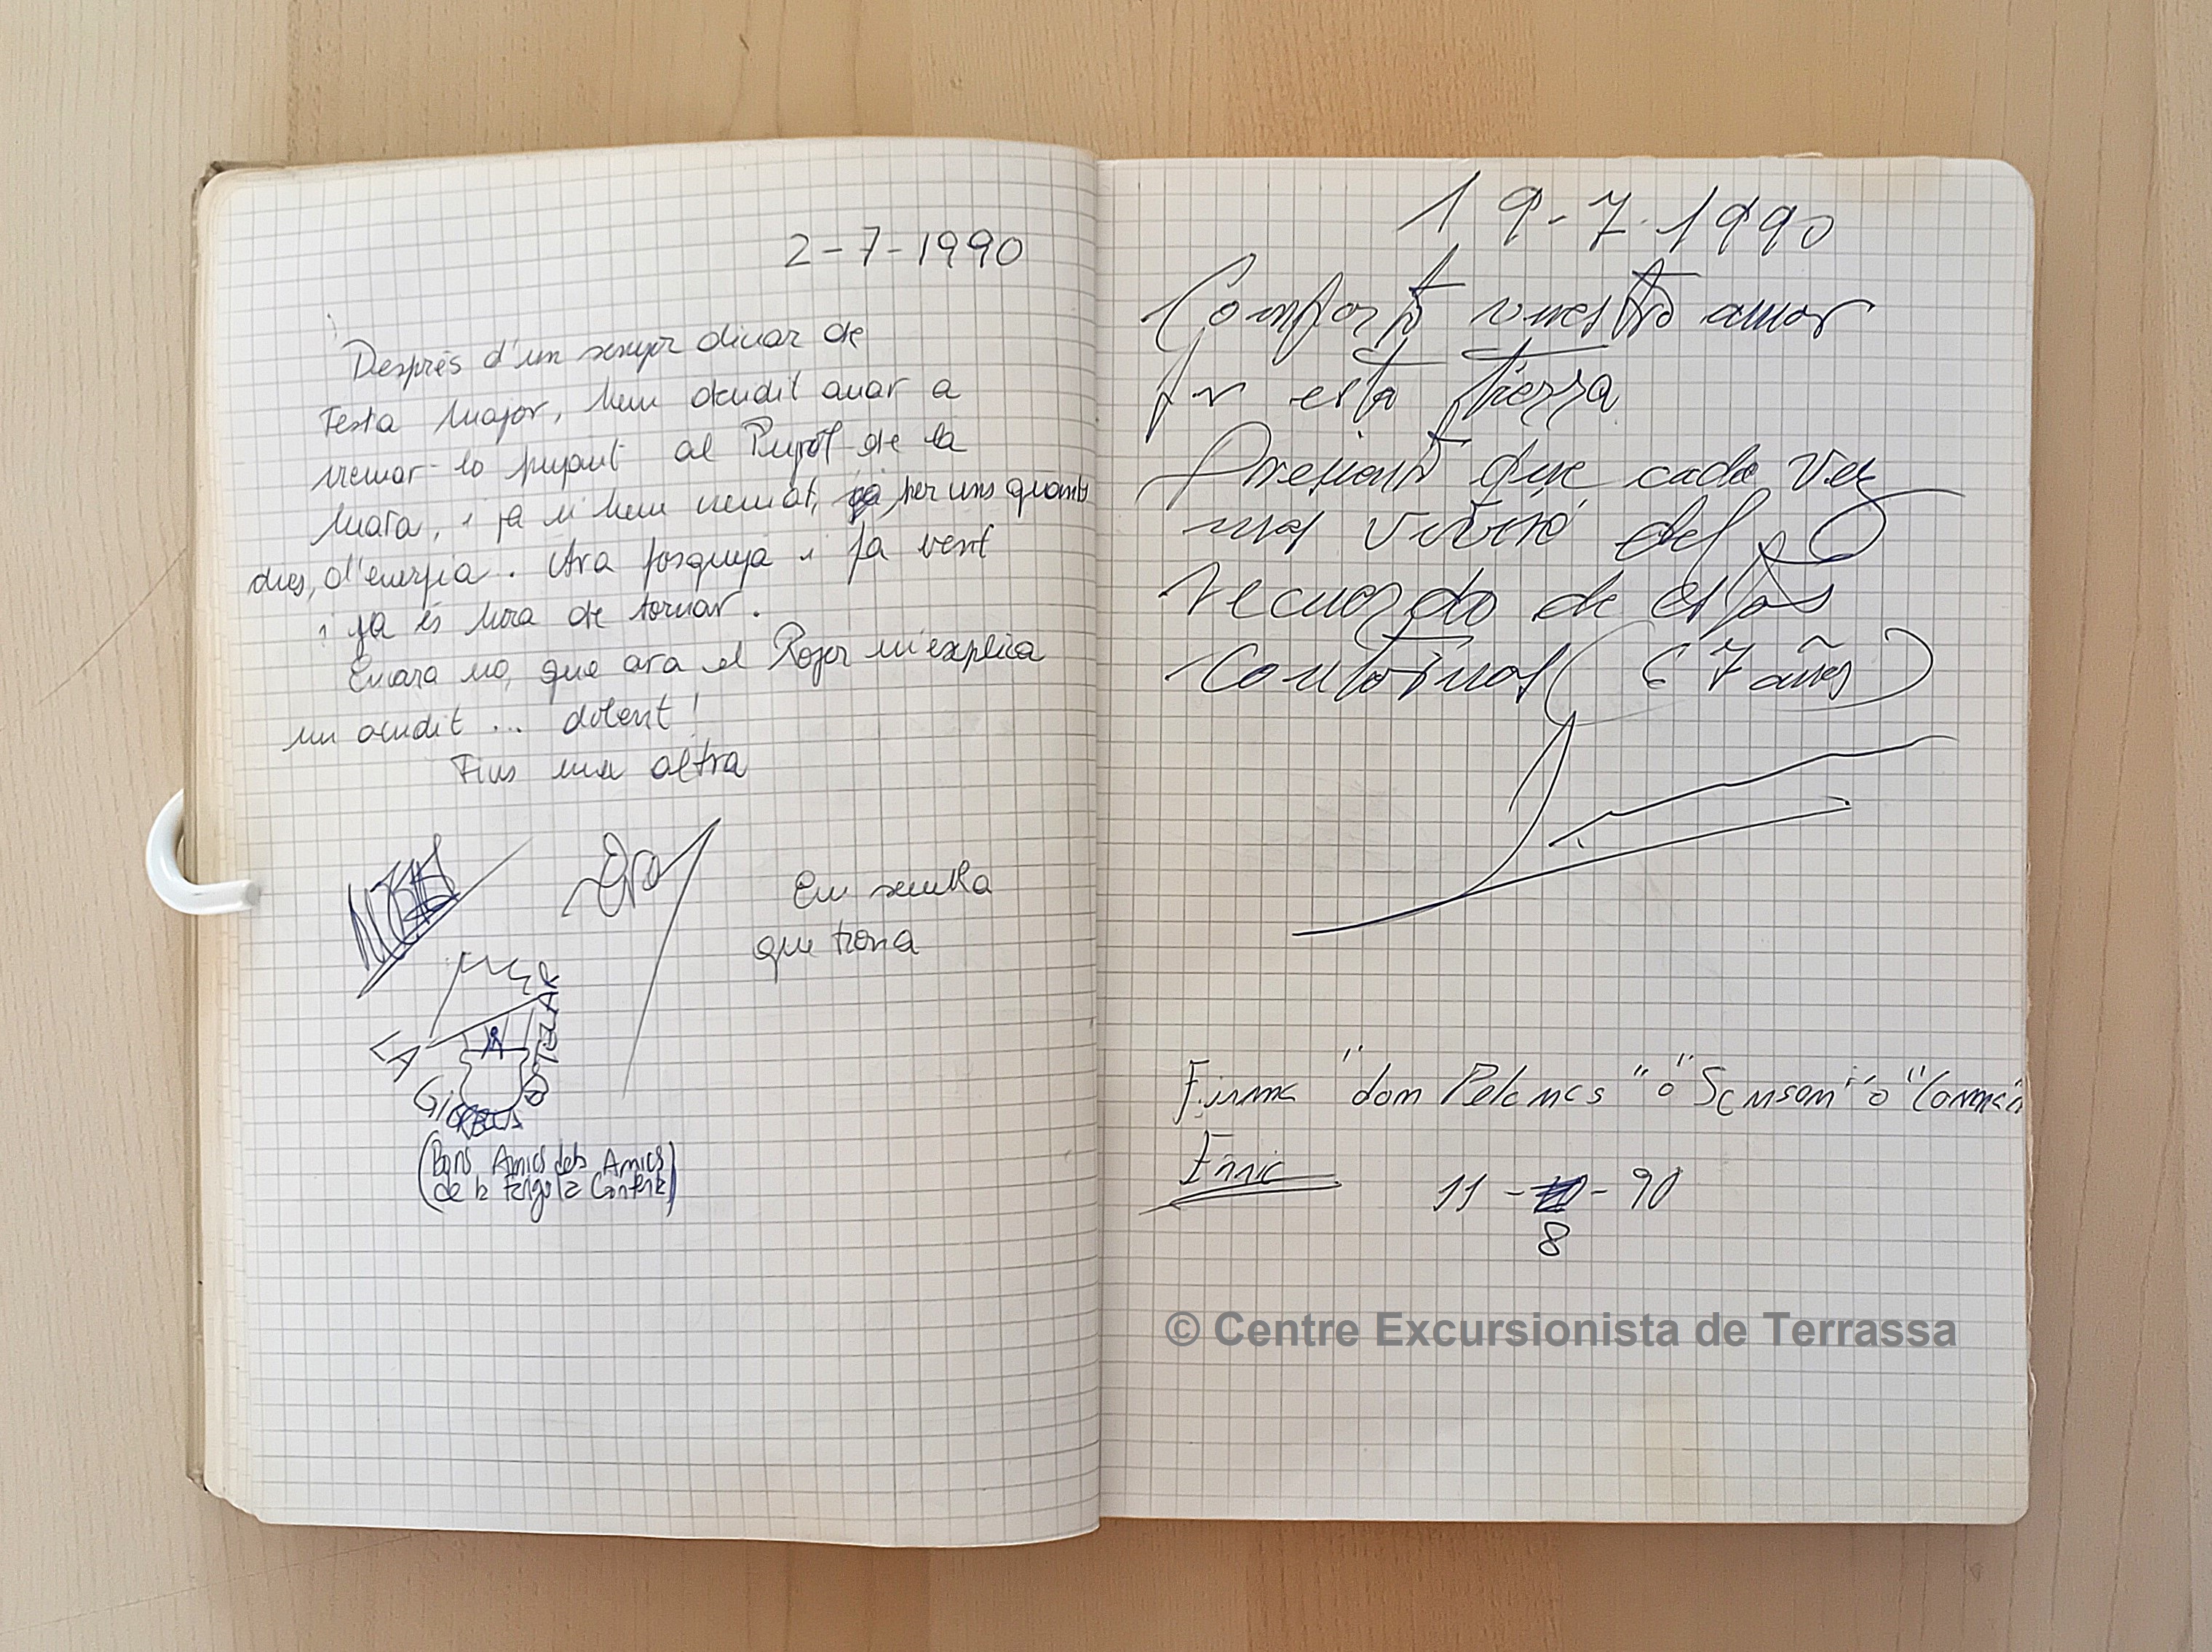 2-7-1990
Després d'un senyor dinar de
Festa Major, hem decidit anar a
cremar-lo pujant al Pujol de la
Mata, i ja n'hem cremat, per uns quants
dies, d'energia. Ara fosqueja i fa vent
i ja és hora de tornar.
Encara no, que ara el Roger m'explica
un acudit ... dolent!
Fins una altra
Em sembla
que trona
LA
(Bons Amics dels Amics
de la Farigola Contenta)
19-7-1990
Comparto vuestro amor
por esta tierra
Presiento que cada vez
mas viviré del
recuerdo de estos
contornos (67 años)
Firma "dom Pelanas" o "Sanson" o "Conman"
Enric
11 - - 90
8
© Centre Excursionista de Terrassa